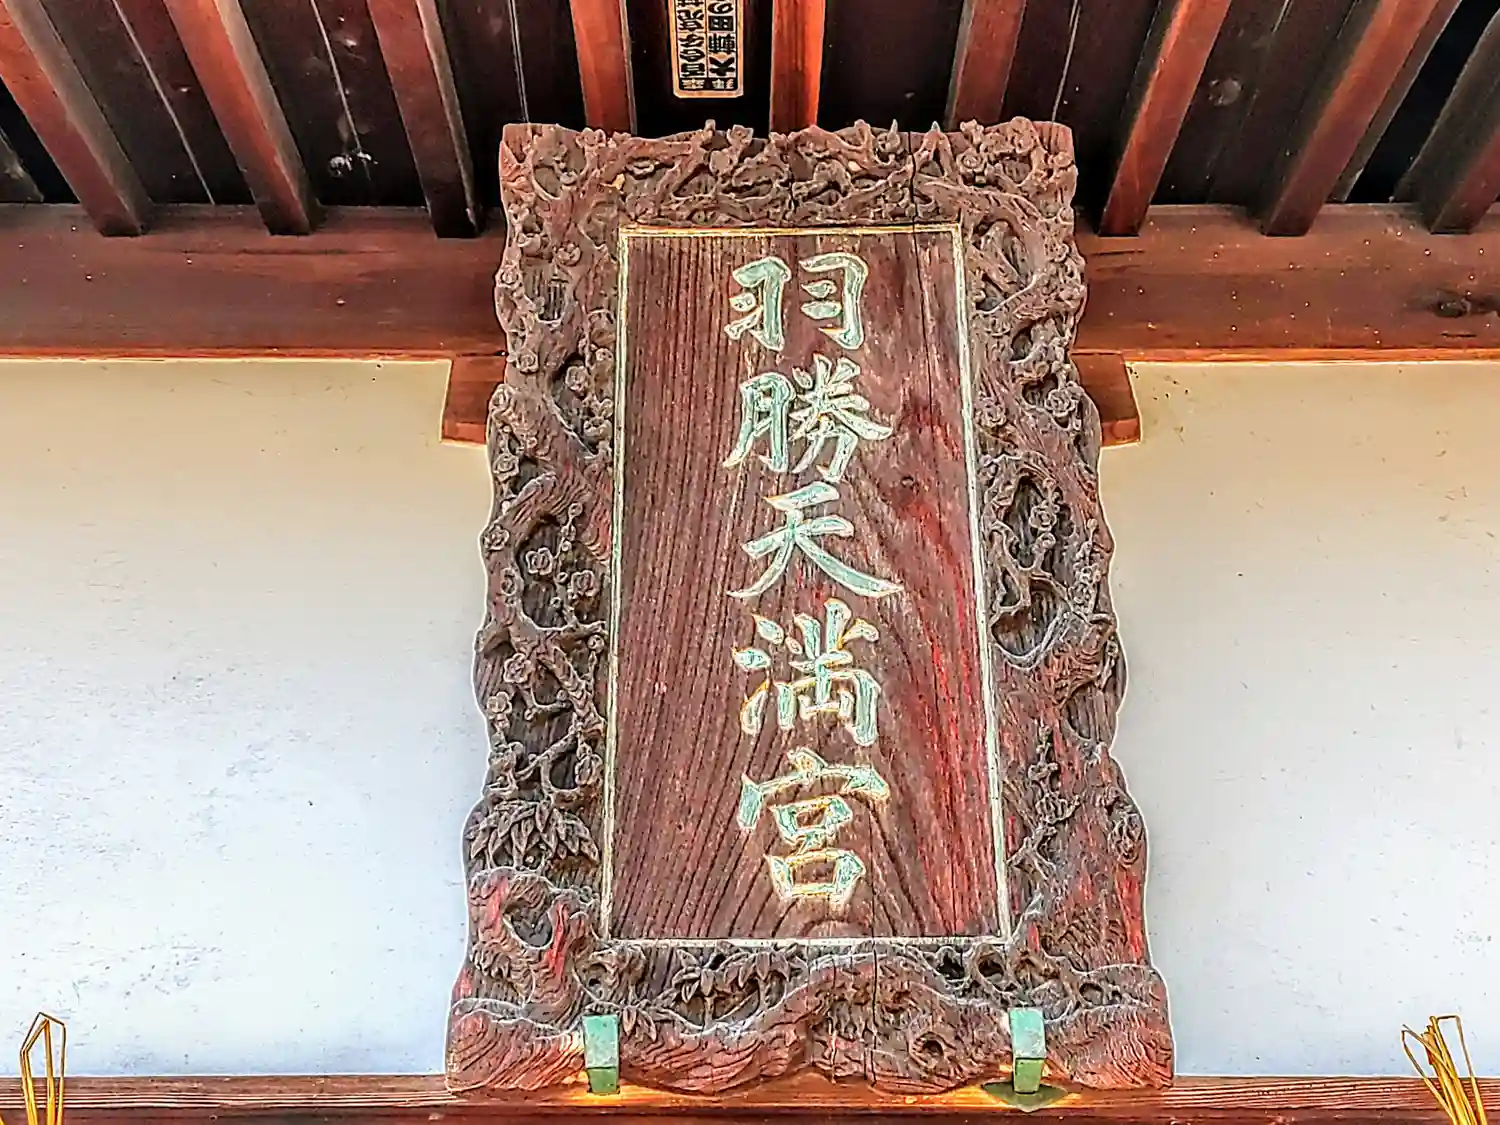 羽勝天満宮